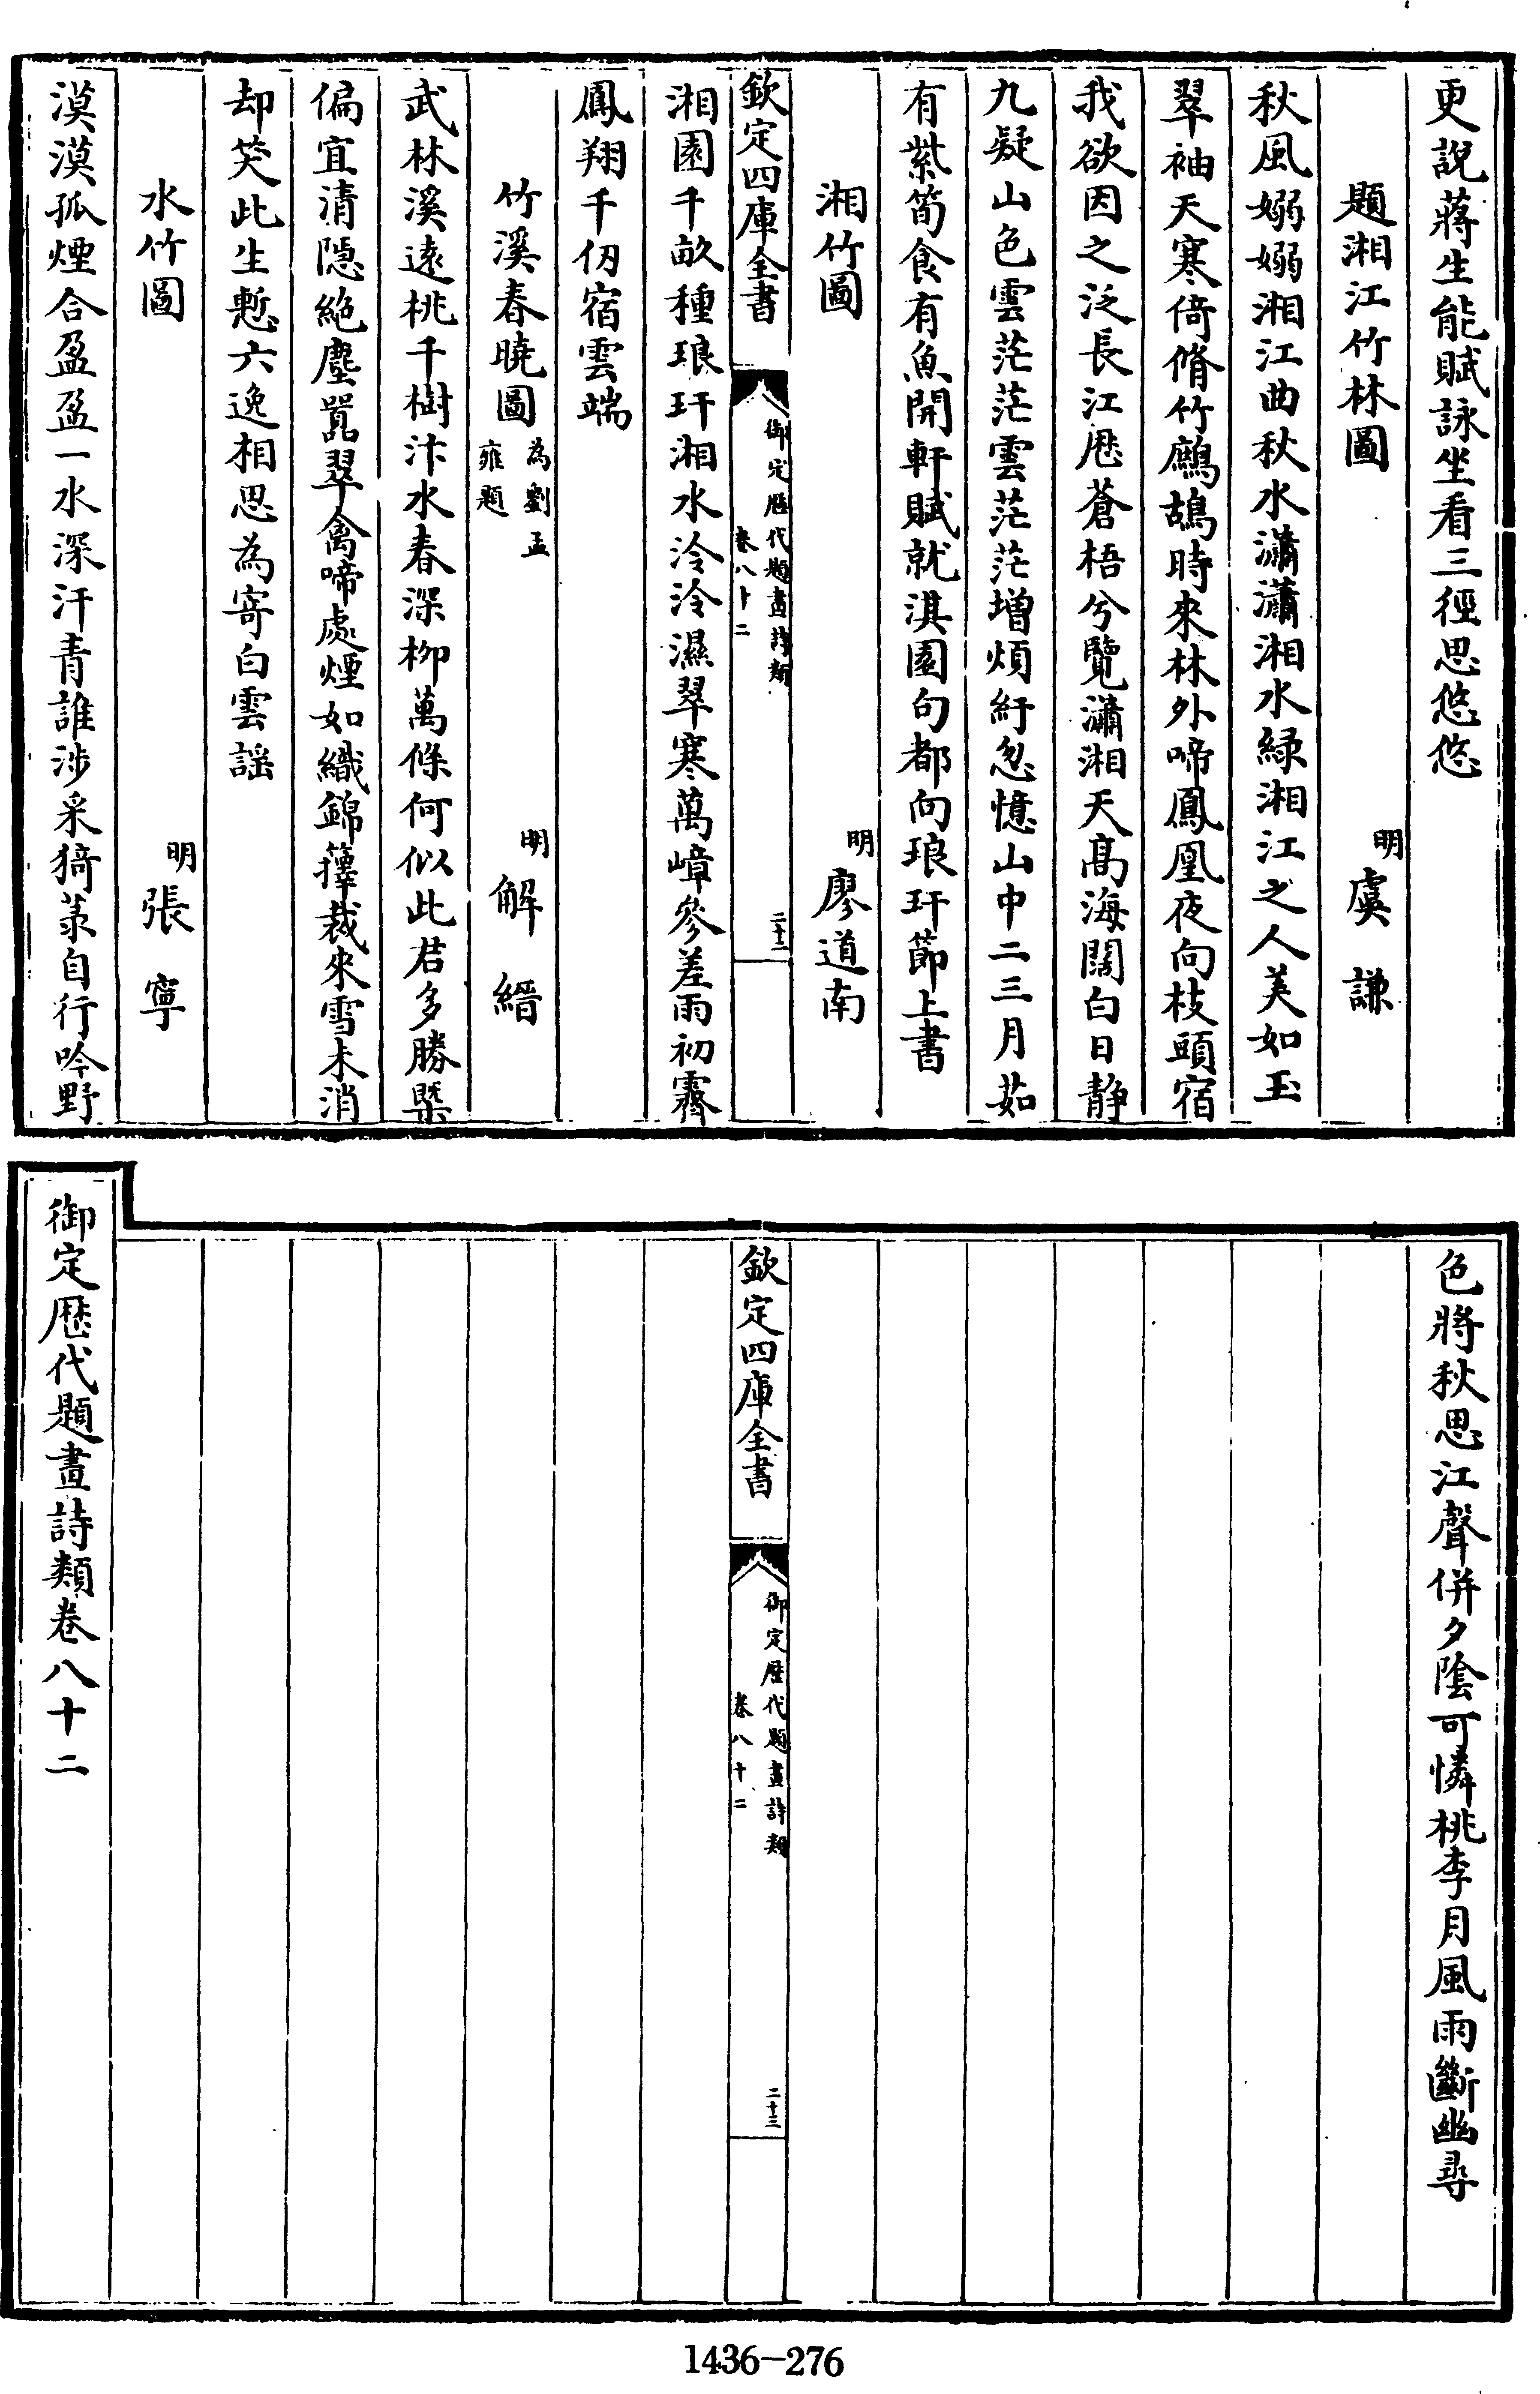 更說蔣生能賦詠坐看三徑思悠悠
題湘江竹林圖
明虞謙
秋風嫋嫋湘江曲秋水瀟瀟湘水緑湘江之人美如玉
翠袖天寒倚脩竹鷓鴣時來林外啼鳳凰夜向枝頭宿
我欲因之泛長江歴蒼梧兮覽瀟湘天髙海闊白日静
九疑山色雲茫茫雲茫茫增煩紆忽憶山中二三月茹
有紫筍食有魚開軒賦就淇園句都向琅玕節上書
湘竹圖
明廖道南
欽定四庫全書
御定歴代題畫詩類
卷八十二
二十二
湘園千畝種琅玕湘水泠泠濕翠寒萬嶂參差雨初霽
鳳翔千仞宿雲端
竹溪春曉圖
為劉孟
雍題
明解縉
武林溪遠桃千樹汴水春深栁萬條何似此君多勝槩
偏宜清隠絶塵囂翠禽啼處煙如織錦籜裁來雪未消
却笑此生慙六逸相思為寄白雲謡
水竹圖
明張寧
漠漠孤煙合盈盈一水深汗青誰涉采猗菉自行吟野
色將秋思江聲併夕陰可憐桃李月風雨斷幽尋
欽定四庫全書
御定歴代題畫詩類
卷八十二
二十三
御定歴代題畫詩類卷八十二
1436-276